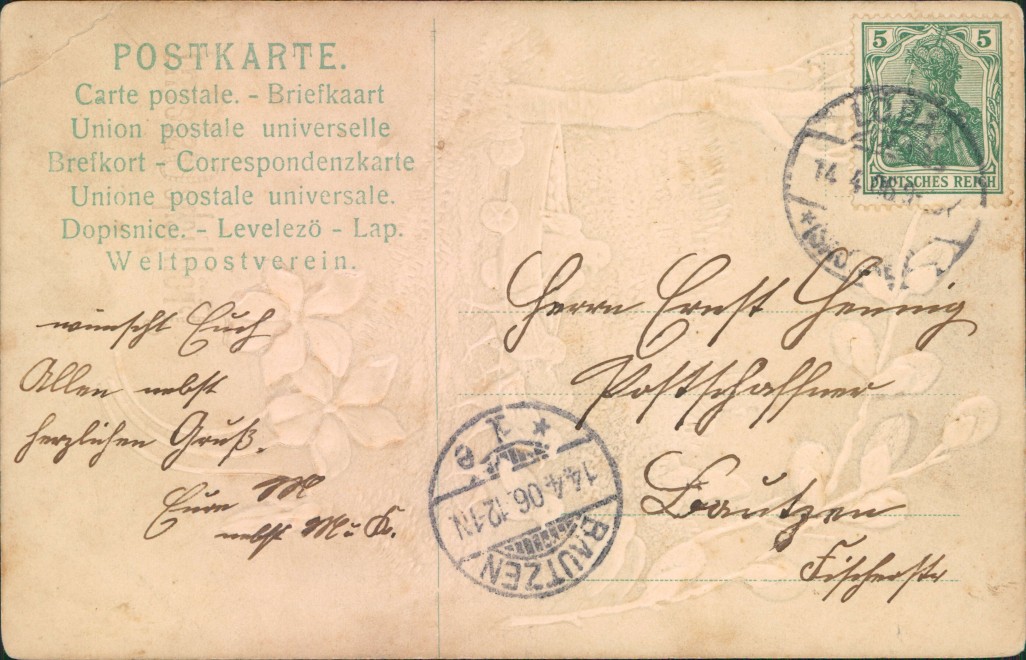 POSTKARTE.
Carte postale. - Briefkaart
Union postale universelle
Brefkort - Correspondenzkarte
Unione postale universale.
Dopisnice. - Levelezö - Lap.
Weltpostverein.
wünscht Euch
Allen nebst
herzlichen Gruß.
Eure M
nebst M u K.
5 5
DEUTSCHES REICH
LÖBAU
14.4.
Herrn Ernst Hennig
Postschaffner
Bautzen
Fischerstr
BAUTZEN
14.4.06.12-1N.
* 1 e